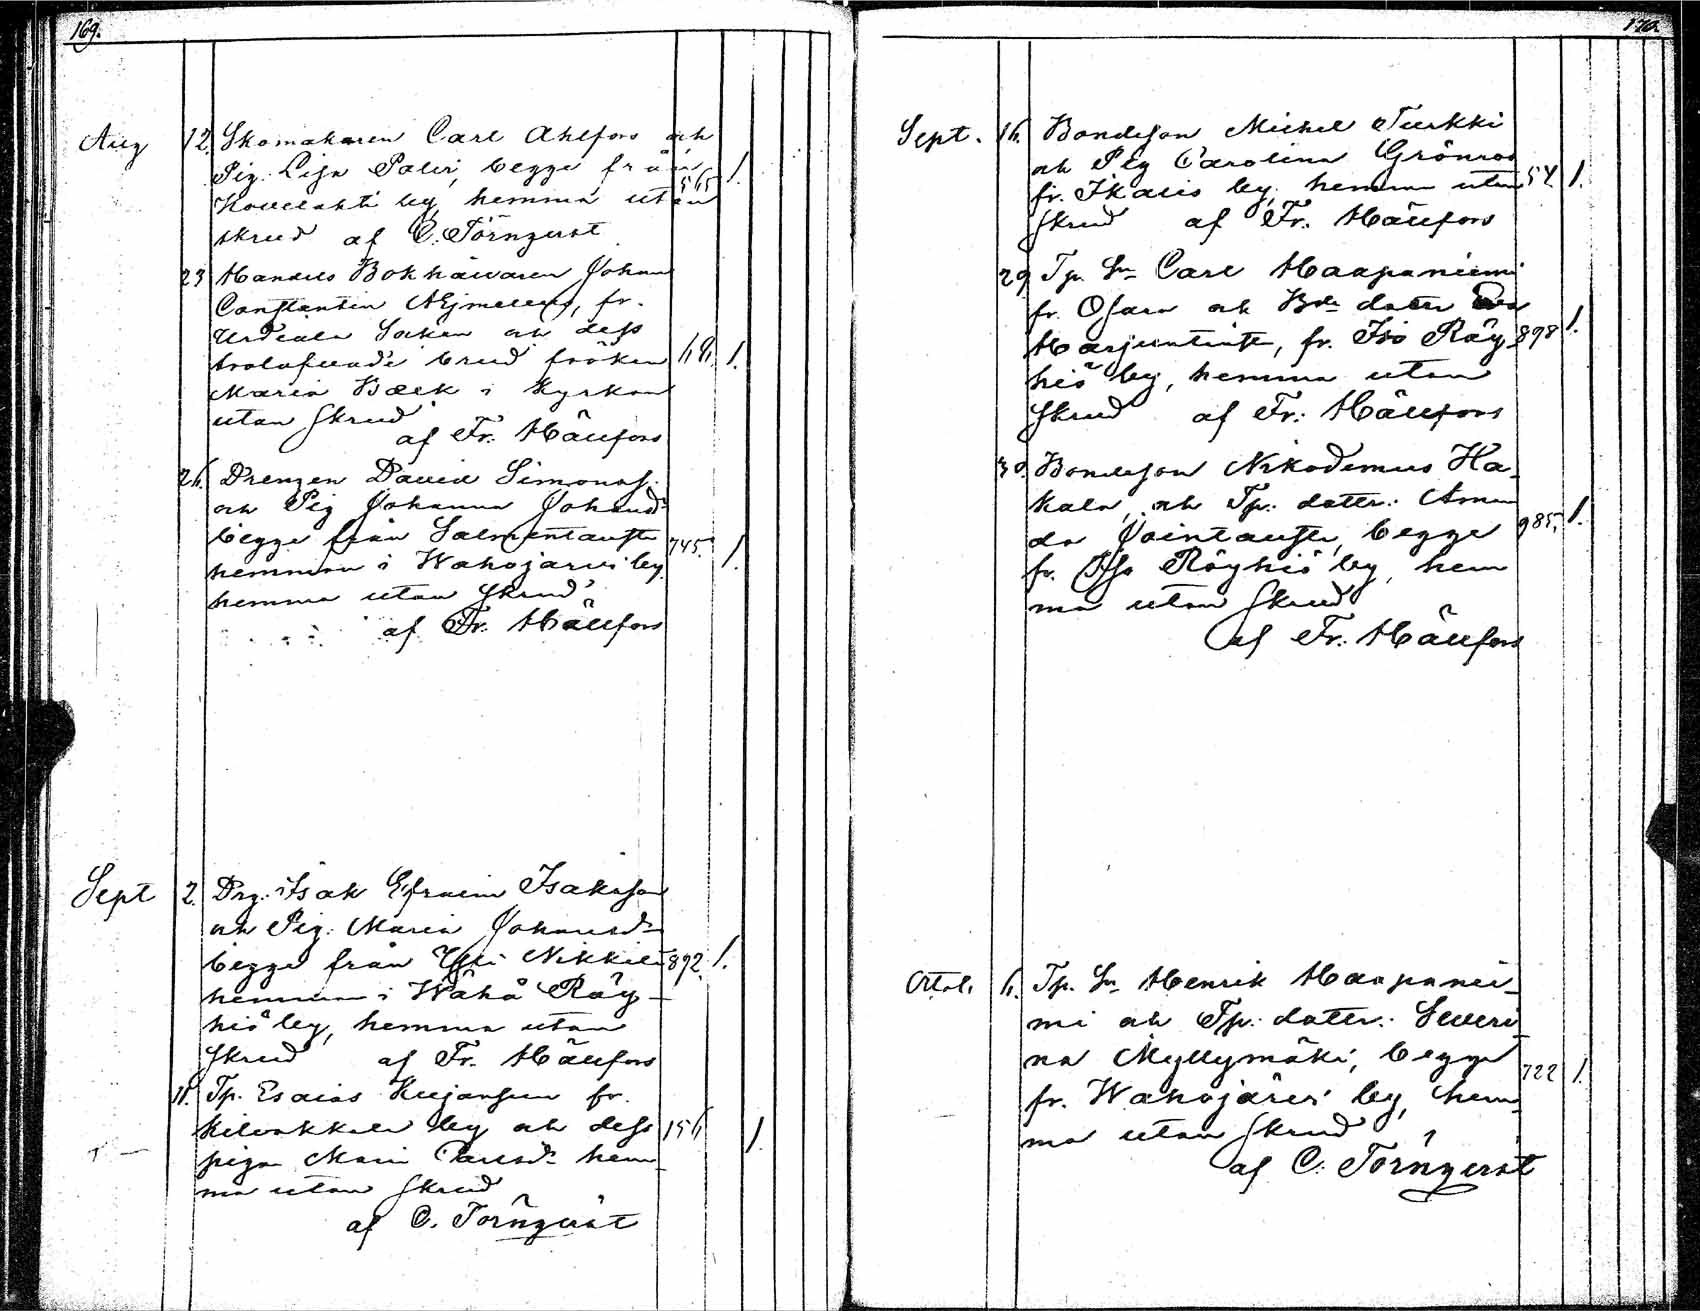 169.
Aug 12. Skomakaren Carl Ahlfors och
Pig. Lisa Palin, begge från
Kovelahti by, hemma utan 565 1.
skrud af C. Törnqvist
23 Handels Bokhållaren Johan
Constantin Ajmelæus, fr.
Urdiala Socken och dess
trolofvade brud fröken 1.
Maria Bæck i Kyrkan
utan skrud
af Fr. Hällfors
26. Drengen David Simonss.
och Pig Johanna Johansd:
begge från Salmentausta 745. 1.
hemman i Wahojärvi by
hemma utan skrud
af Fr. Hällfors
Sept 2. Drg. Isak Efraim Isaksson
och Pig. Maria Johansd:
begge från Yli Nikkilä 892. 1.
hemman i Wähä Röy-
hiö by, hemma utan
skrud af Fr. Hällfors
11. Tp. Esaias Kujansuu fr.
Kilvakkala by och dess 156 1.
pigan Maria Carlsd: hem-
ma utan skrud
af C. Törnqvist
170.
Sept. 16. Bondeson Michel Turkki
och Pig Carolina Grönroos
fr. Ikalis by, hemma utan 54 1.
skrud af Fr. Hällfors
29 Tp. Sn Carl Haapaniemi
fr. Osara och Bde dotter Eva
Harjuntausta, fr. Iso Röy- 898 1.
hiö by, hemma utan
skrud af Fr: Hällfors
30. Bondeson Nikodemus Ha-
kala, och Tp: dotter: Aman
da Jointausta, begge 985. 1.
fr. Iso Röyhiö by, hem
ma utan skrud
af Fr: Hällfors
Octob. 6. Tp. Sn Henrik Haapanie-
mi och Tp: dotter: Severi-
na Myllymäki, begge
fr. Wahojärvi by, hem- 722 1.
ma utan skrud
af C. Törnqvist